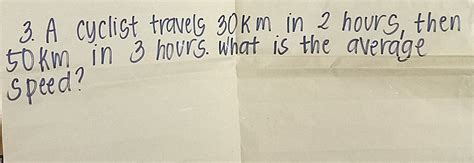 3. A cyclist travels 30km in 2 hours, then
50km in 3 hours. What is the average
speed?